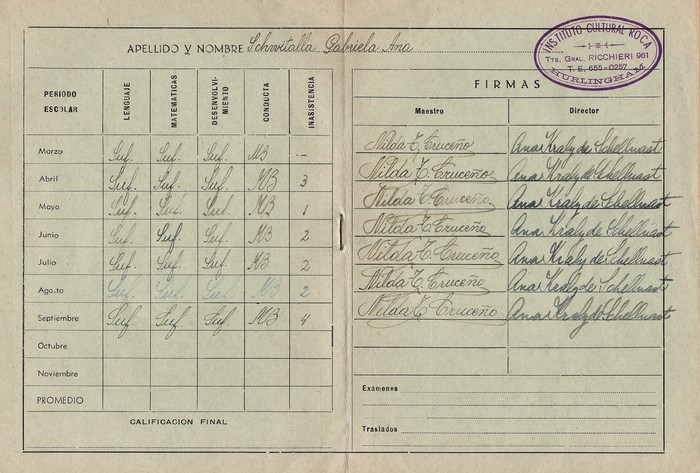 APELLIDO Y NOMBRE Schwitalla Gabriela Ana
INSTITUTO CULTURAL ROCA
TTE. GRAL. RICCHIERI 961
T. E. 655-0257
HURLINGHAM
PERIODO ESCOLAR LENGUAJE MATEMATICAS DESENVOLVI-MIENTO CONDUCTA INASISTENCIA
Marzo Suf. Suf. Suf. MB —
Abril Suf. Suf. Suf. MB 3
Mayo Suf. Suf. Suf. MB 1
Junio Suf. Suf. Suf. MB 2
Julio Suf. Suf. Suf. MB 2
Agosto Suf. Suf. Suf. MB 2
Septiembre Suf. Suf. Suf. MB 4
Octubre
Noviembre
PROMEDIO
CALIFICACION FINAL
FIRMAS
Maestro Director
Nilda T. Truceño Ana Kraly de Schellnast
Nilda T. Truceño Ana Kraly de Schellnast
Nilda T. Truceño Ana Kraly de Schellnast
Nilda T. Truceño Ana Kraly de Schellnast
Nilda T. Truceño Ana Kraly de Schellnast
Nilda T. Truceño Ana Kraly de Schellnast
Nilda T. Truceño Ana Kraly de Schellnast
Exámenes
Traslados